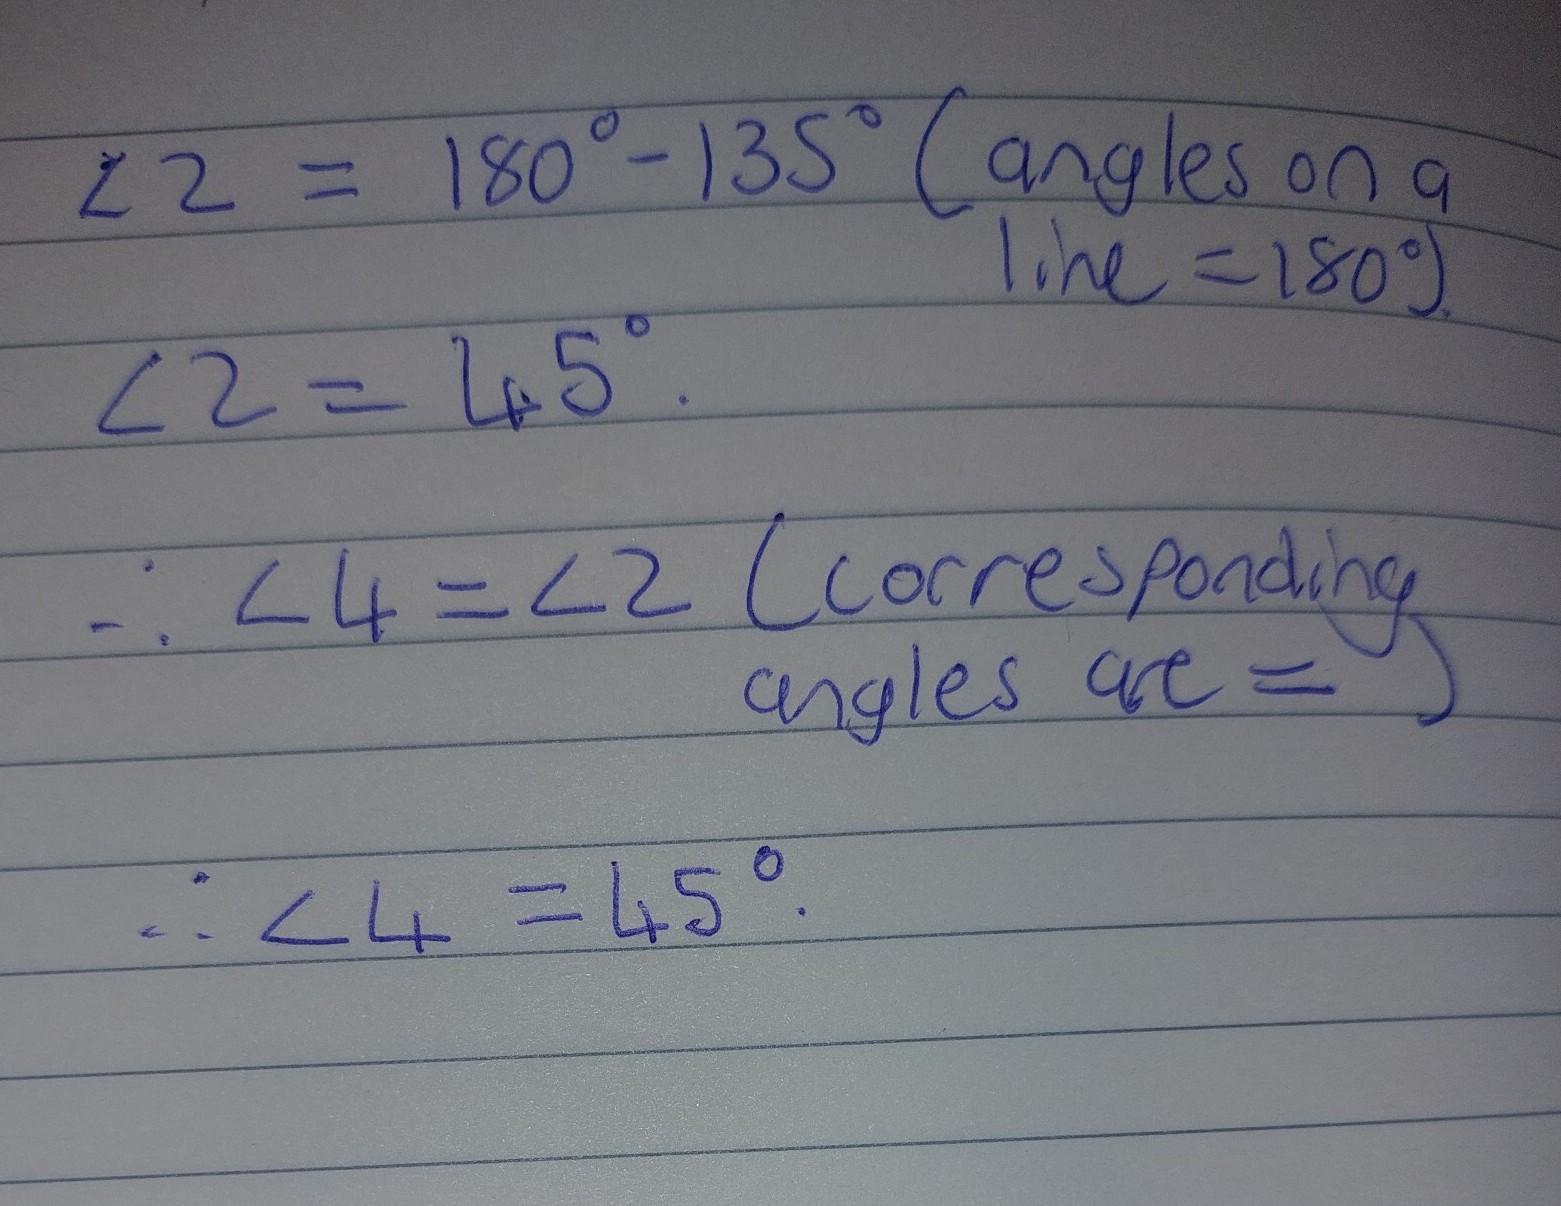 ∠2 = 180° - 135° (angles on a
line = 180°).
∠2 = 45°.
∴ ∠4 = ∠2 (corresponding
angles are =)
∴ ∠4 = 45°.